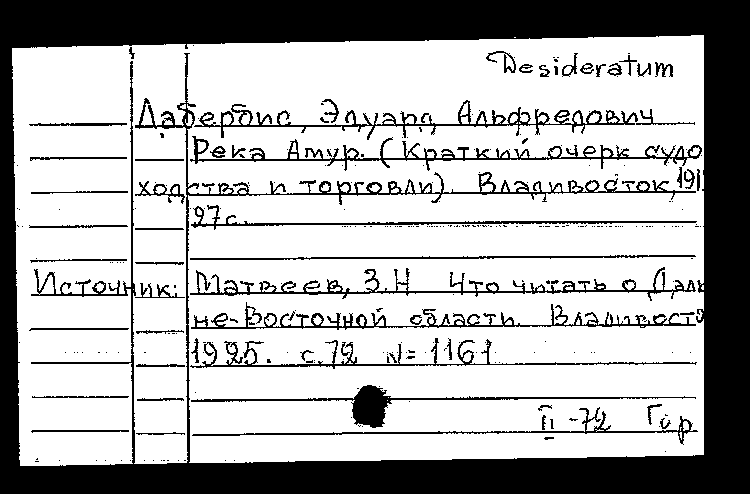 Desideratum
Лабербис, Эдуард Альфредович
Река Амур. (Краткий очерк судо
ходства и торговли). Владивосток, 191
27с.
Источник: Матвеев, З.Н Что читать о Даль
не-Восточной области. Владивосто
1925. с.72 N= 1161
II -72 Гор